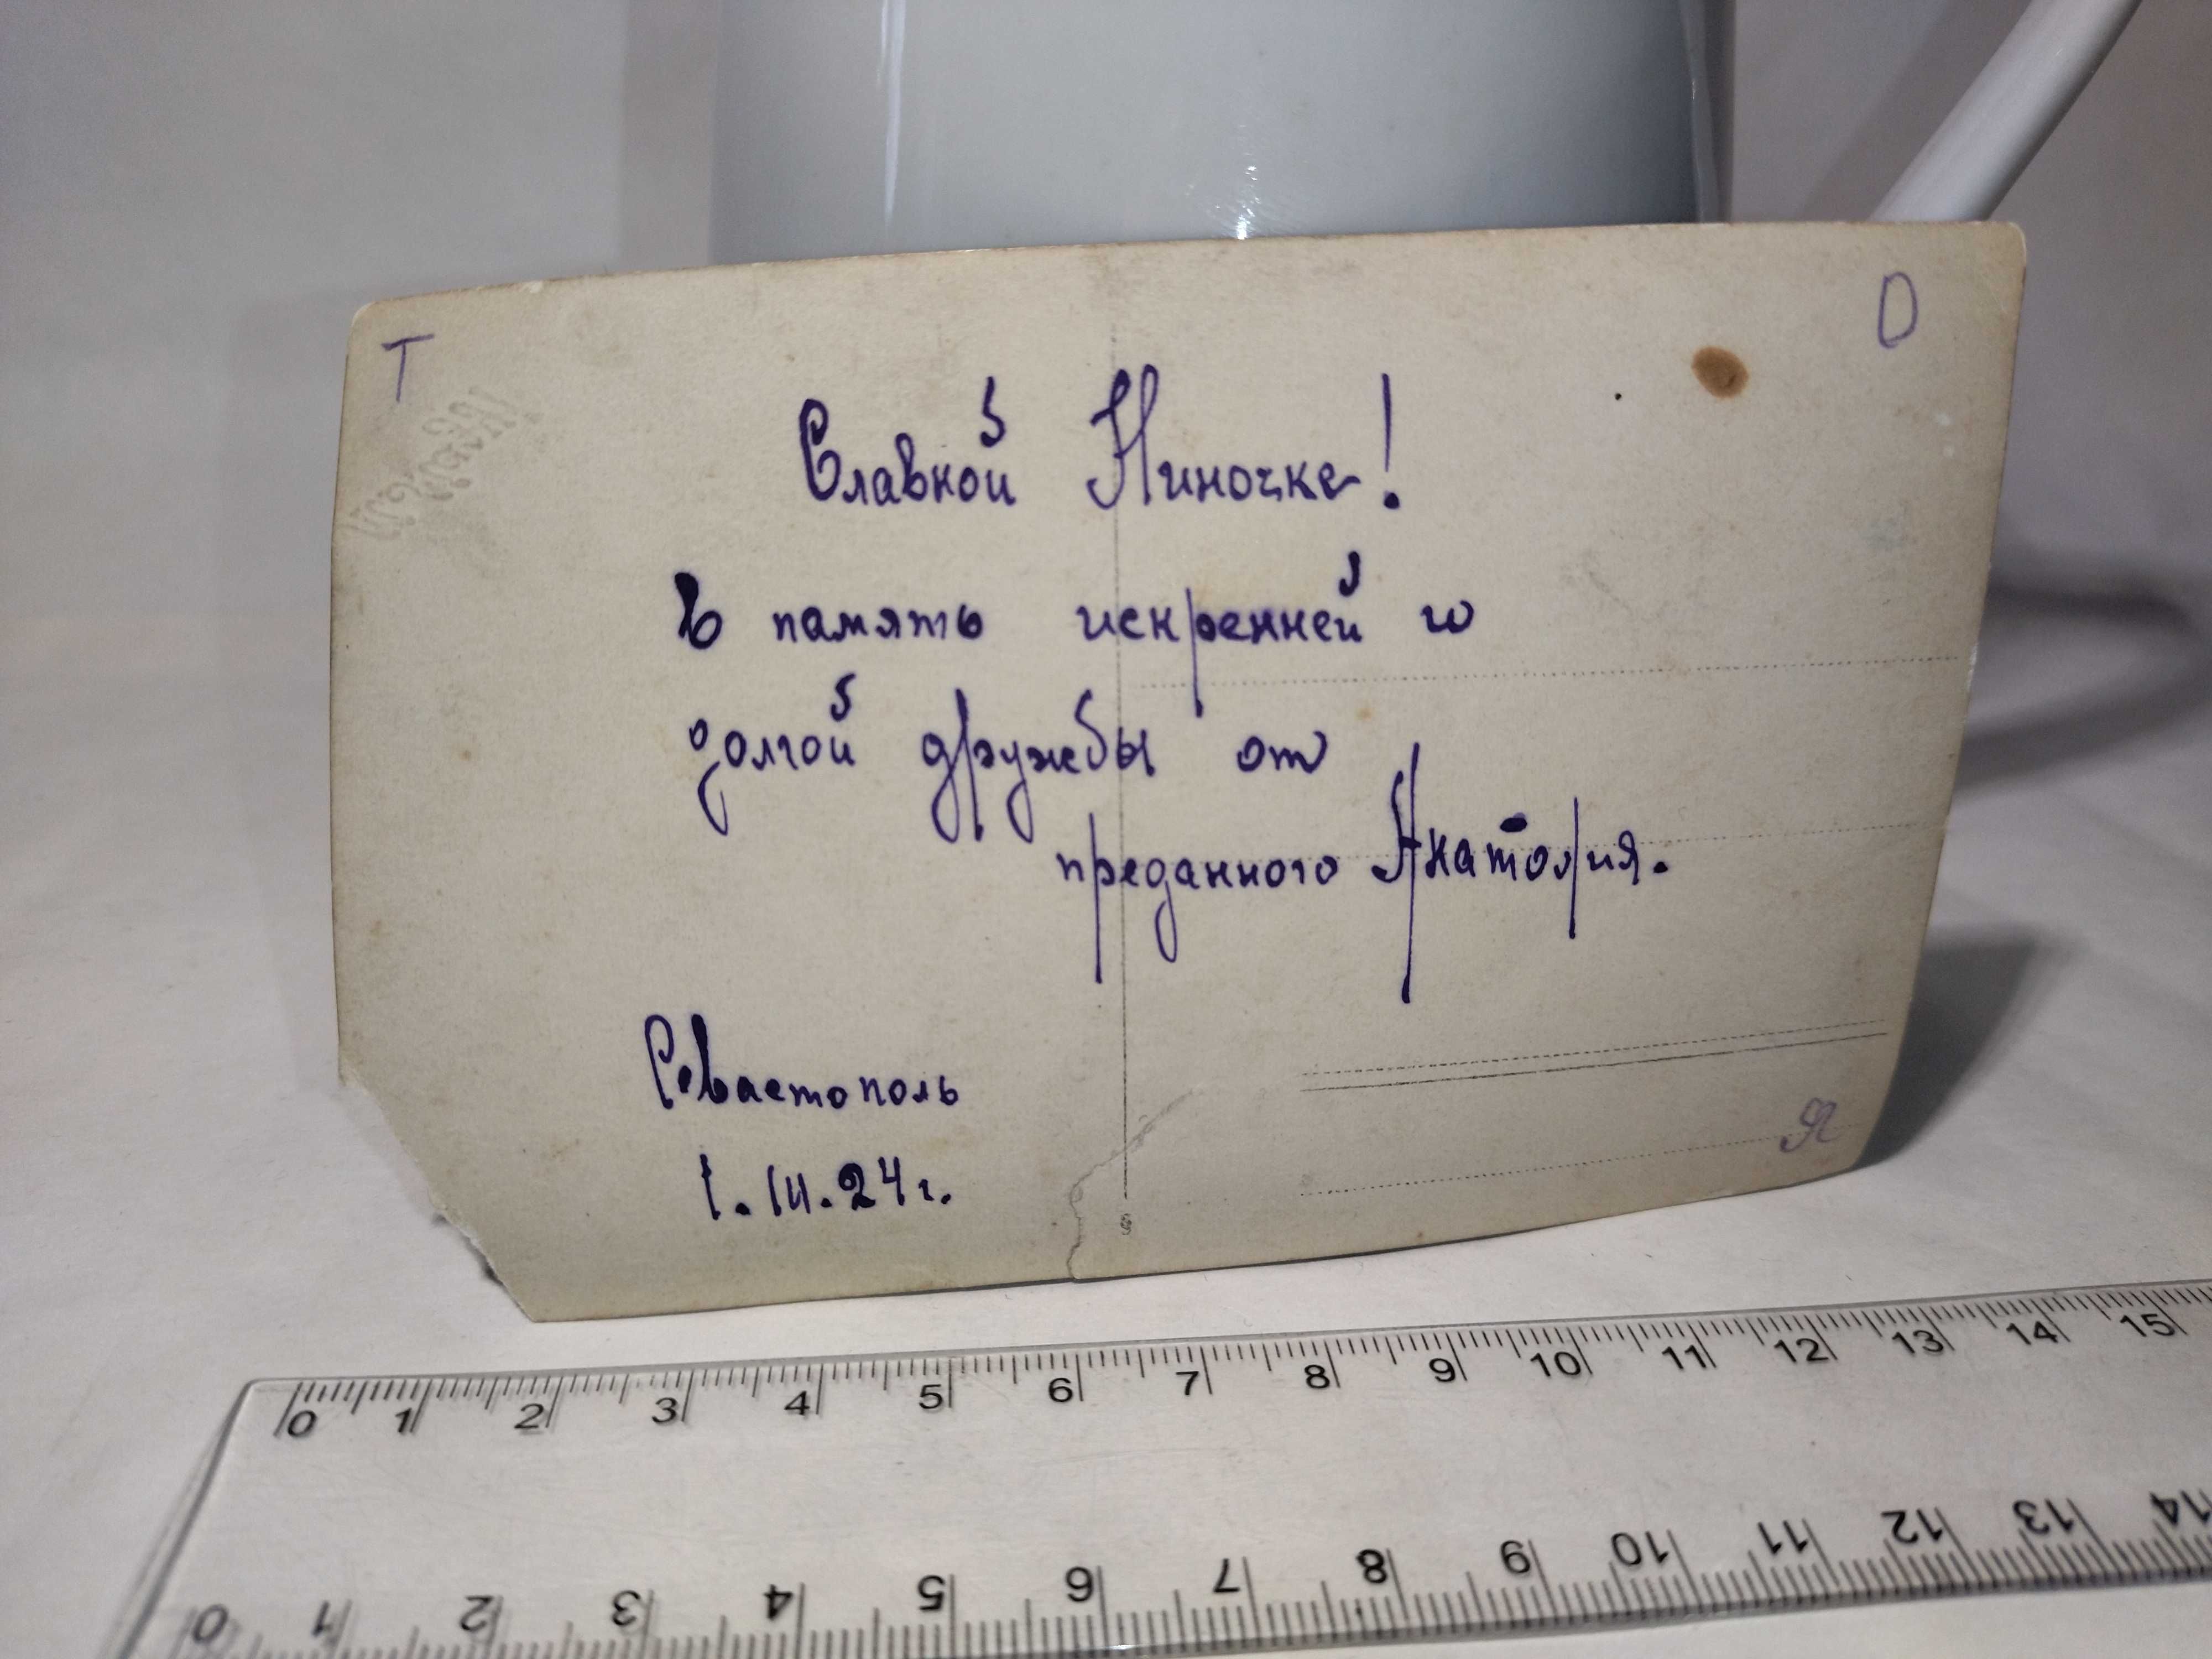 Т О
Славной Ниночке!
В память искренней и
долгой дружбы от
преданного Анатолия.
Севастополь
1. III. 24 г.
Я
0 1 2 3 4 5 6 7 8 9 10 11 12 13 14 15
0 1 2 3 4 5 6 7 8 9 10 11 12 13 14